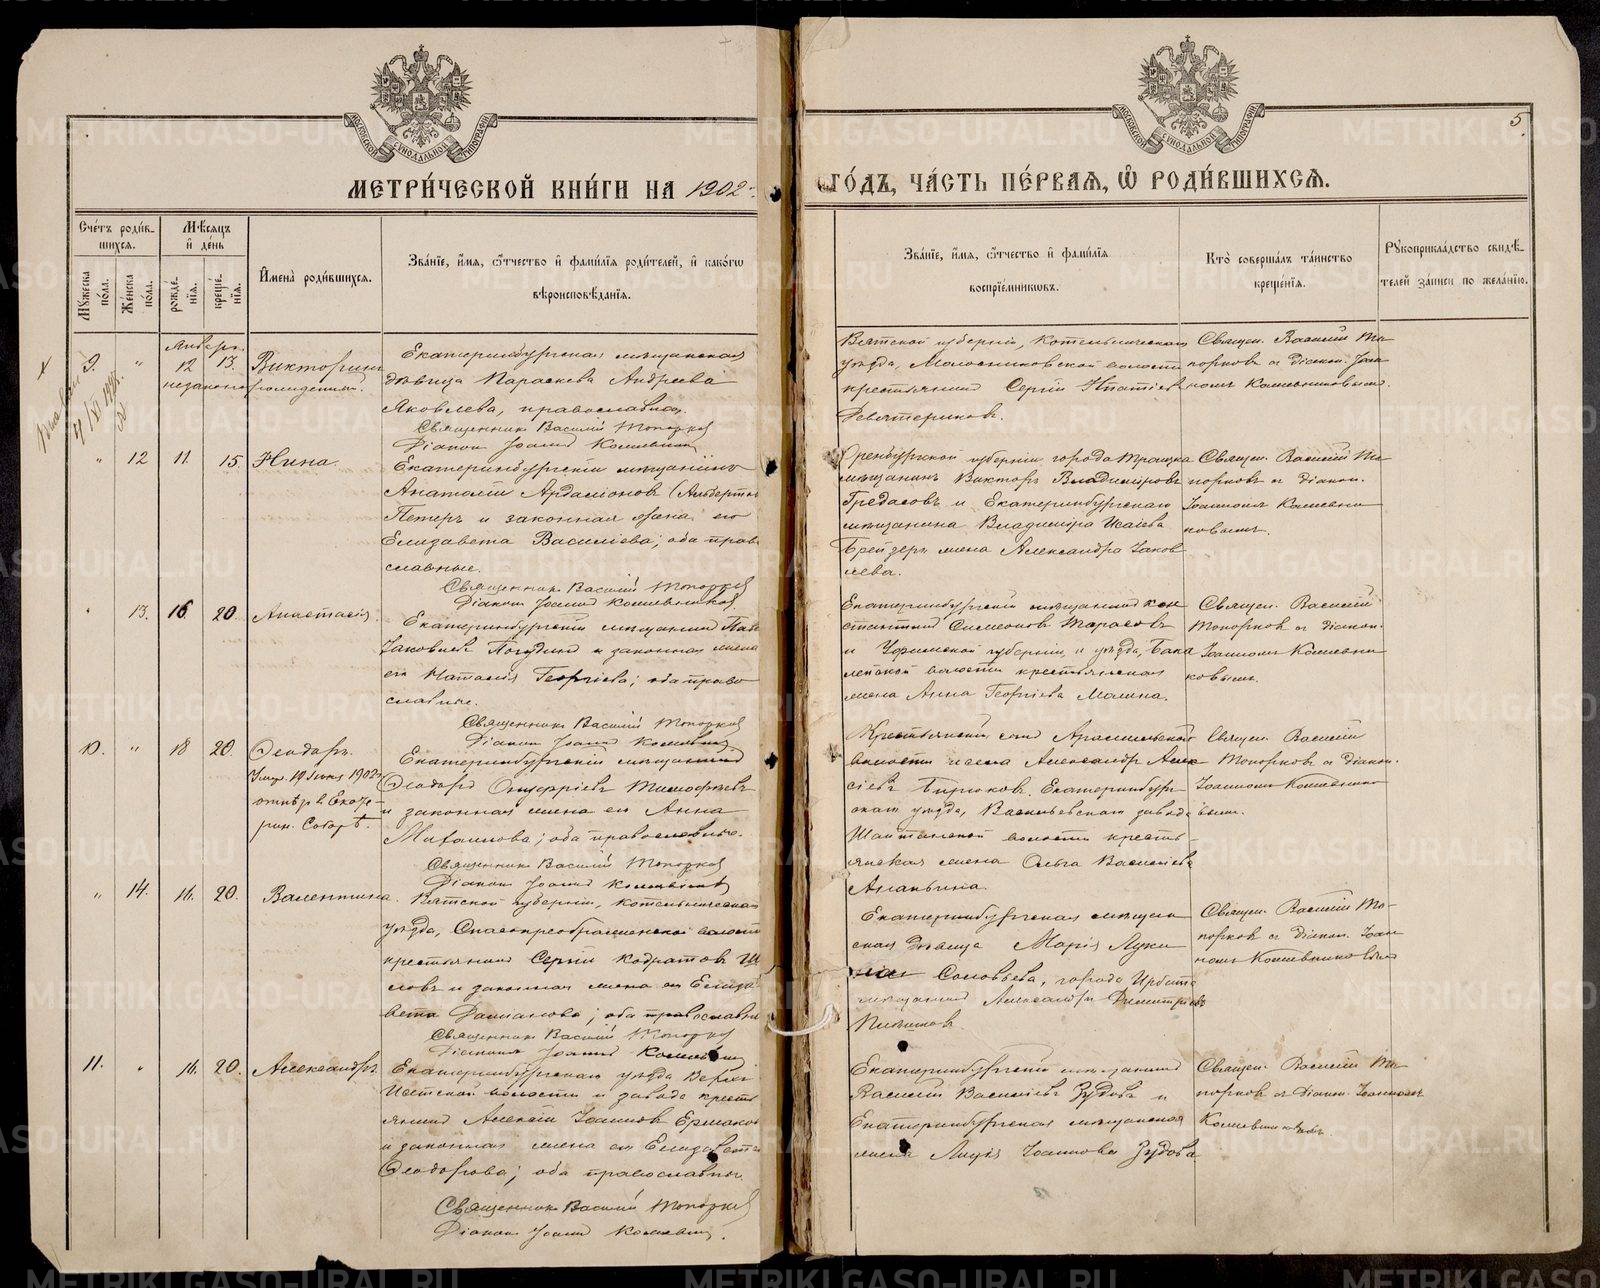 МЕТРИ́ЧЕСКОЙ КНИ́ГИ НА 1902
ГО́ДЪ, ЧА́СТЬ ПЕ́РВАѦ, Ѡ РОДИ́ВШИХСѦ.
5.
МОСКОВСКОЙ СѴНОДАЛЬНОЙ ТИПОГРАФІИ
МОСКОВСКОЙ СѴНОДАЛЬНОЙ ТИПОГРАФІИ
Сче́тъ роди́вшихсѧ.
Мꙋжеска по́ла.
Же́нска по́ла.
Мѣ́сѧцъ и҆ де́нь
рожде́нїѧ.
креще́нїѧ.
И҆мена̀ роди́вшихсѧ.
Зва́нїе, и҆́мѧ, ѻ҆́тчество и҆ фами́лїѧ роди́телей, и҆ како́гѡ
вѣроисповѣ́данїѧ.
Зва́нїе, и҆́мѧ, ѻ҆́тчество и҆ фами́лїѧ
воспрїе́мникѡвъ.
Кто̀ соверша́лъ та́инство
креще́нїѧ.
Рꙋкоприкла́дство свидѣ́телей за́писи по жела́нїю.
Января
9. " 12 13. Викторинъ
незаконнорожденный.
Екатеринбургская мѣщанская
дѣвица Параскева Андреева
Яковлева, православная.
Священникъ Василій Топорков
Діаконъ Іоаннъ Кошевник
Вятской губерніи, Котельническаго
уѣзда, Молосниковской волости
крестьянинъ Сергій Игнатіевъ
Девятериковъ.
Священ. Василій То
порковъ съ діакон. Іоан
номъ Кошевниковымъ.
" 12 11. 15. Нина.
Екатеринбургскій мѣщанинъ
Анатолій Ардаліоновъ (Альбертов
Петеръ и законная жена его
Елизавета Василіева; оба право
славные.
Священникъ Василій Топорков
Діаконъ Іоаннъ Кошевников
Оренбургской губерніи города Троицка
мѣщанинъ Викторъ Владиміровъ
Гредасовъ и Екатеринбургскаго
мѣщанина Владиміра Исаіева
жена Александра Іаков
лева.
Священ. Василій То
порковъ съ діакон.
Іоанномъ Кошевни
ковымъ.
" 13. 16. 20. Анастасія.
Екатеринбургскій мѣщанинъ Пав
Іаковлевъ Погудинъ и законная жена
его Наталія Георгіева; оба право
славные.
Священникъ Василій Топорков
Діаконъ Іоаннъ Кошевник
Екатеринбургскій мѣщанинъ Кон
стантинъ Симеоновъ Тарасовъ
и Уфимской губерніи и уѣзда,
волости крестьянская
жена Анна Георгіева Молина.
Священ. Василій
Топорковъ съ діакон.
Іоанномъ Кошевни
ковымъ.
10. " 18 20. Ѳеодоръ.
Умер. 19 1902
отпѣт в Екате-
рин. Соборѣ.
Екатеринбургскій мѣщанинъ
Ѳеодоръ Онуфріевъ Тимофеевъ
и законная жена его Анна
Михаилова; оба православные.
Священникъ Василій Топорков
Діаконъ Іоаннъ Кошевников
Крестьянскій сынъ Арамильской
волости и села Александръ Алек
сіевъ Бирюковъ, Екатеринбург
скаго уѣзда, Васильевскаго завода
Шайтанской волости кресть-
янская жена Ольга Василіева
Ананьина.
Священ. Василій
Топорковъ съ діакон.
Іоанномъ Кошевнико
вым.
" 14. 16. 20. Валентина.
Вятской губерніи, Котельническаго
уѣзда, Спасопреображенской волост
крестьянинъ Сергій Кодратовъ
ловъ и законная жена его Елиза
вета Даміанова; оба православны
Священникъ Василій Топорков
Діаконъ Іоаннъ Кошевник
Екатеринбургская мѣщан
ская дѣвица Марія Луки
Соловьева, города Ирбита
мѣщанинъ Александръ Димитріевъ
Священ. Василій То-
порковъ съ діакон. Іоан
номъ Кошевниковым
11. " 16. 20. Александръ.
Екатеринбургскаго уѣзда Верхъ
Исетской волости и завода кресть
янинъ Алексій Іоанновъ Ермаков
и законная жена его Елизавета
Ѳеодорова; оба православны
Священникъ Василій Топорков
Діаконъ Іоаннъ Кошевник.
Екатеринбургскій мѣщанинъ
Василій Василіевъ Зудовъ и
Екатеринбургская мѣщанская
жена Лидія Іоаннова Зудова
Священ. Василій То
порковъ съ діакон. Іоанномъ
Кошевниковымъ.
METRIKI.GASO-URAL.RU